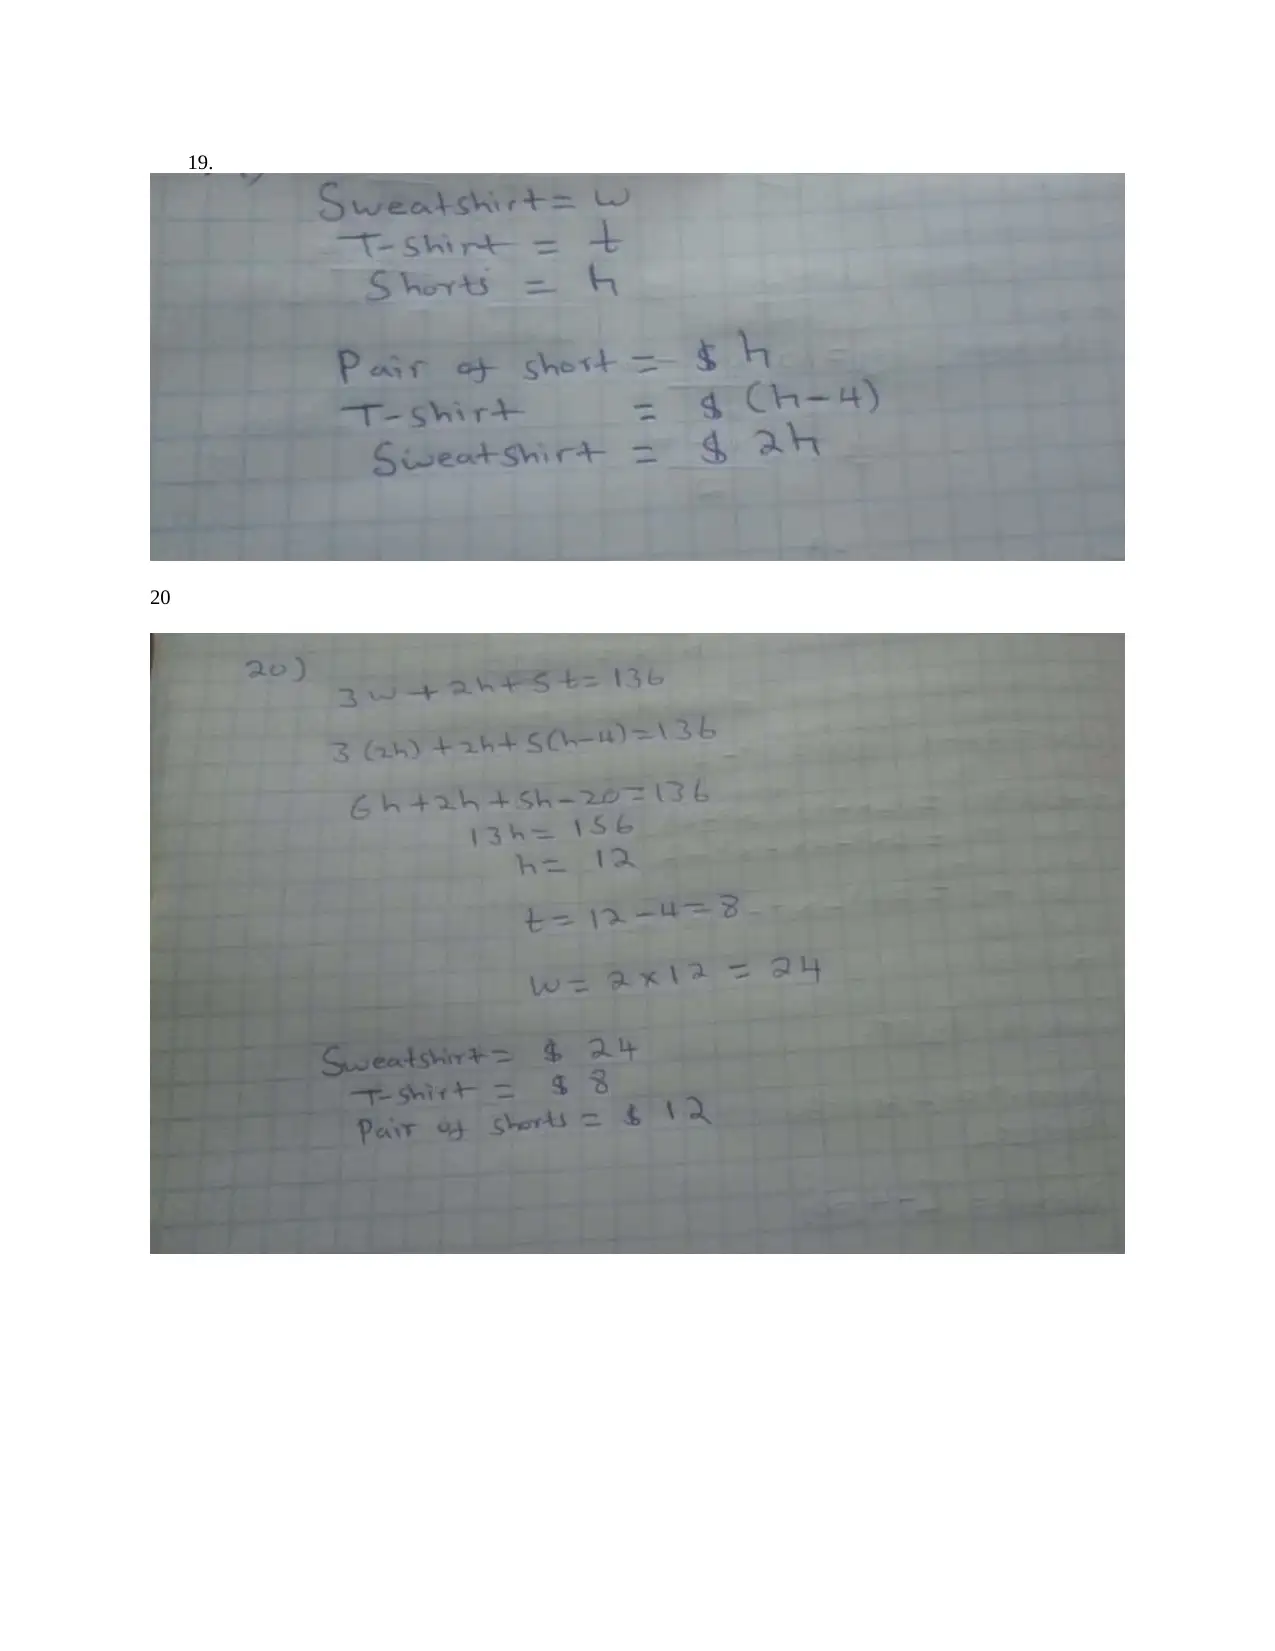 19.
Sweatshirt = w
T-shirt = t
Shorts = h
Pair of short = $ h
T-shirt = $ (h-4)
Sweatshirt = $ 2h
20
20)
3w + 2h + 5t = 136
3(2h) + 2h + 5(h-4) = 136
6h + 2h + 5h - 20 = 136
13h = 156
h = 12
t = 12 - 4 = 8
w = 2 x 12 = 24
Sweatshirt = $ 24
T-shirt = $ 8
Pair of shorts = $ 12